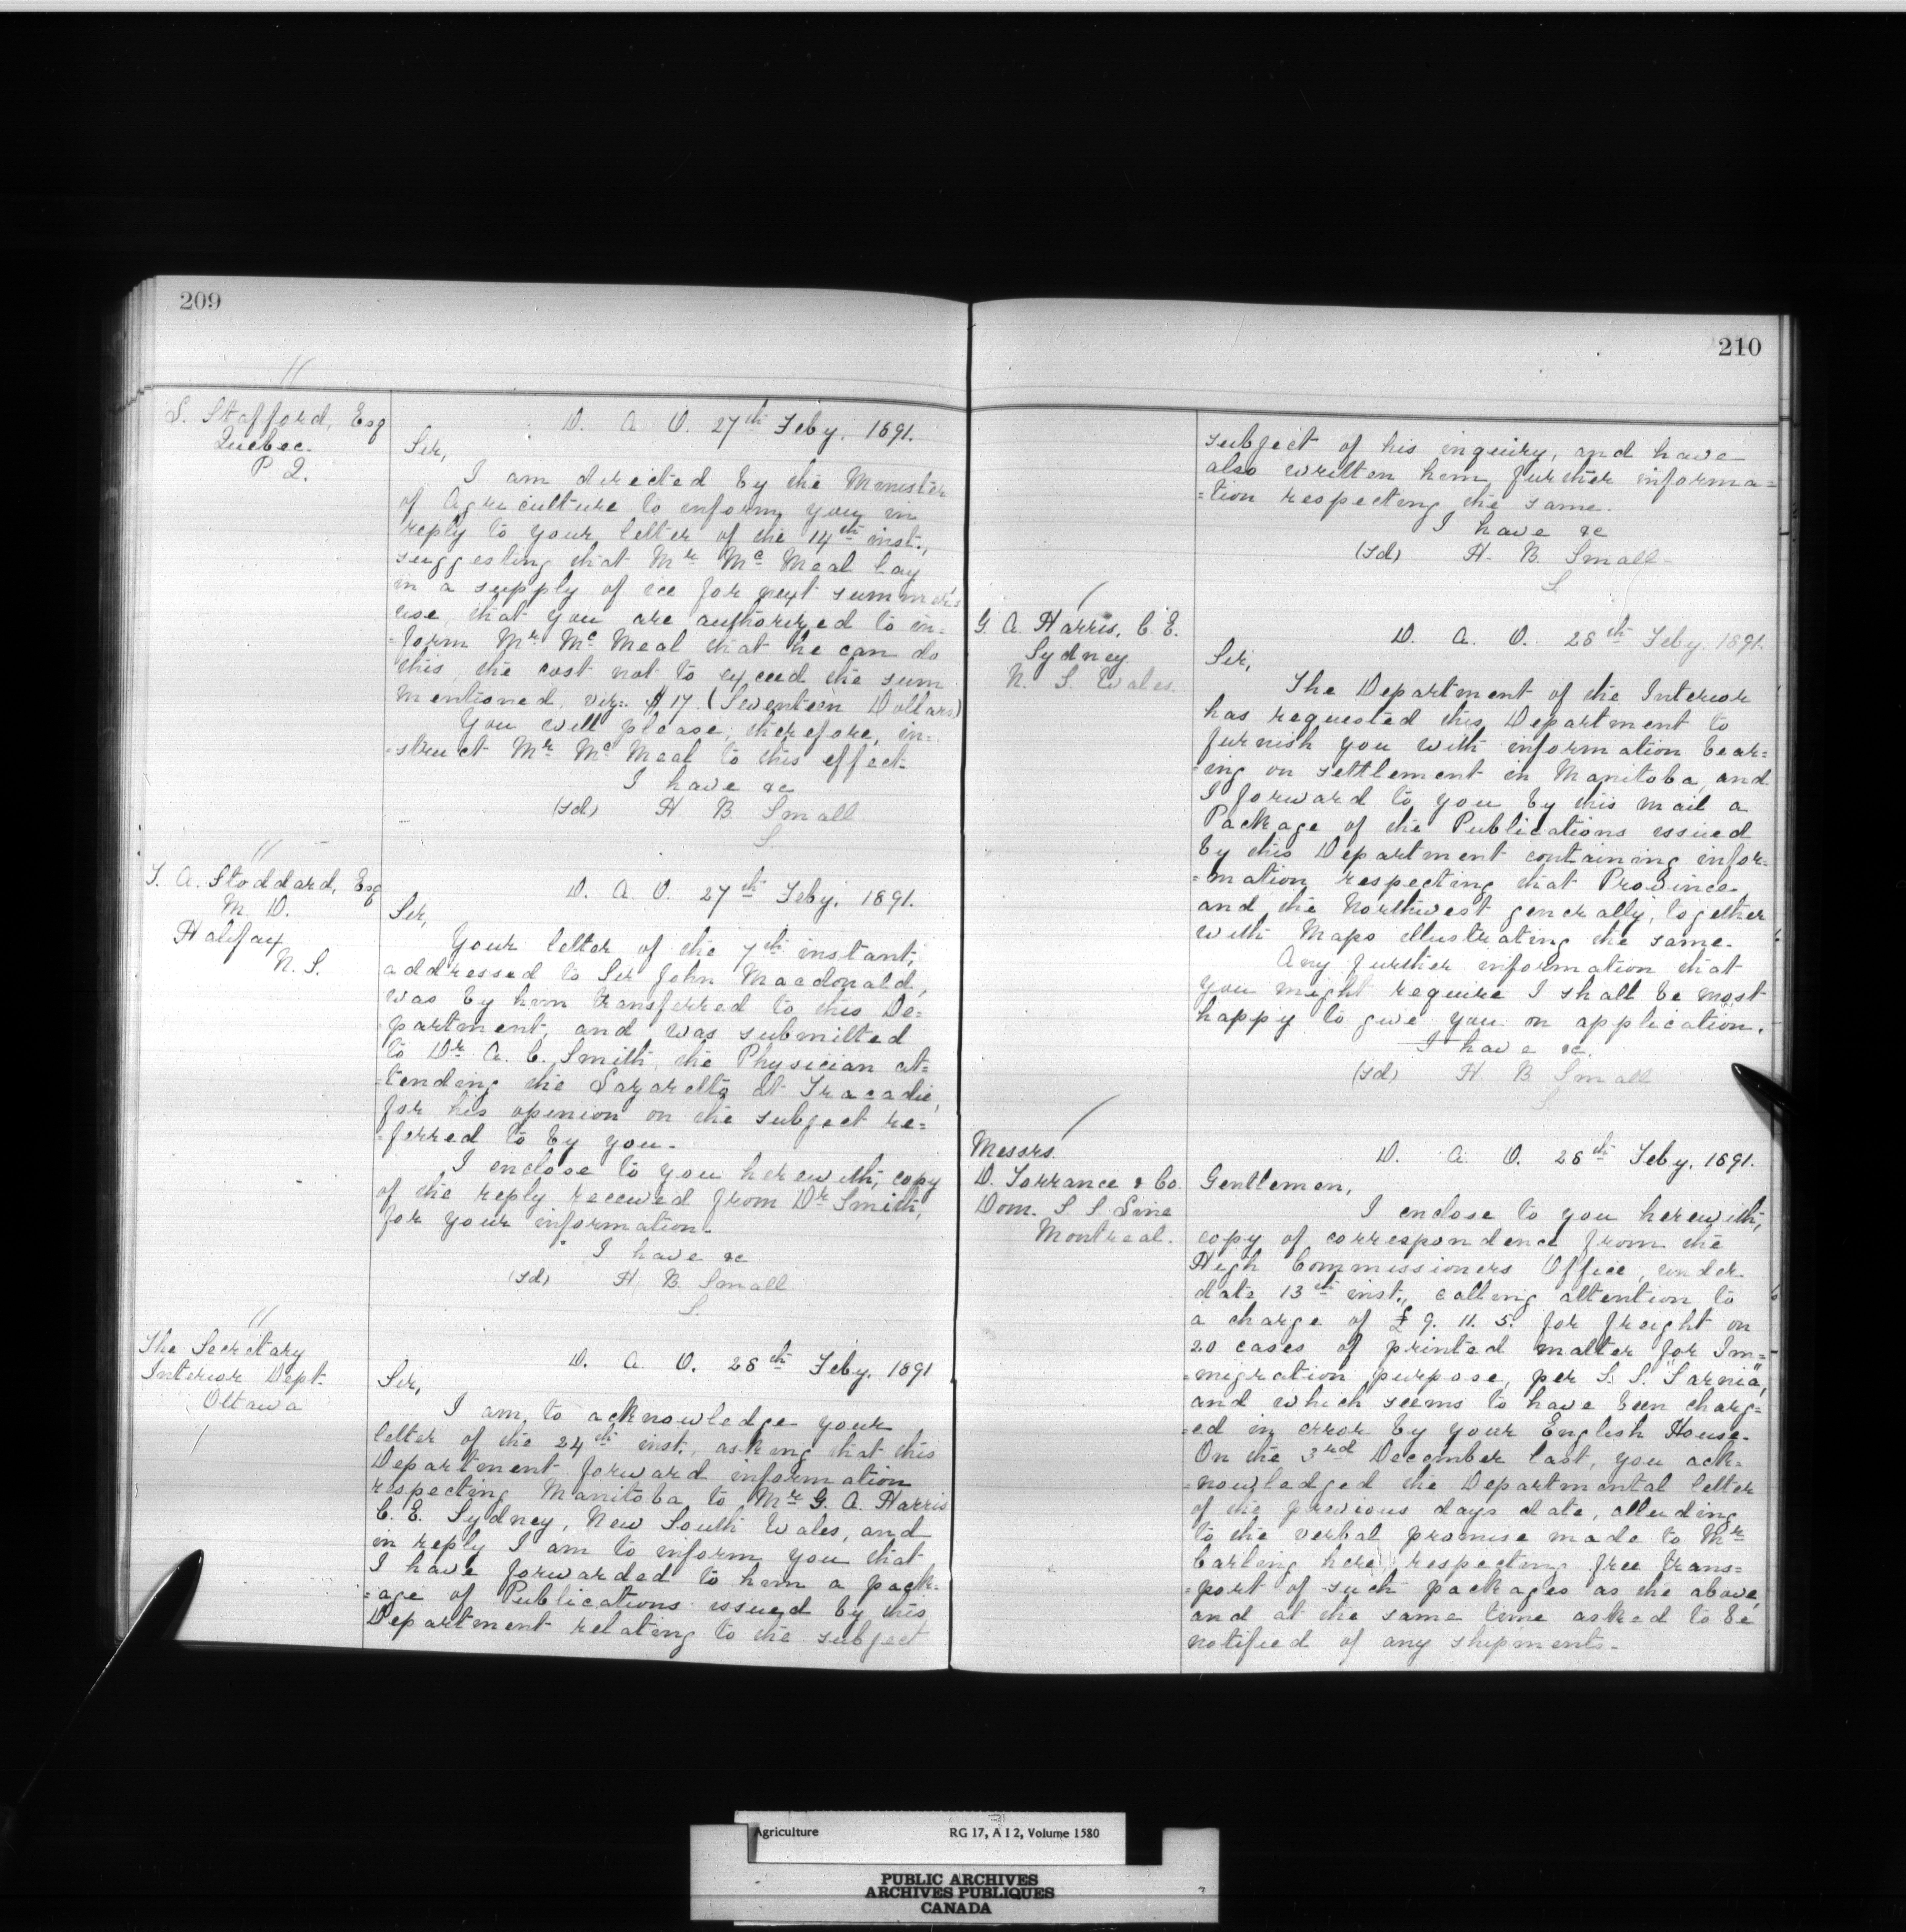 209
L. Stafford, Esq
Quebec.
P. Q.
D. A. O. 27th Feby. 1891.
Sir,
I am directed by the Minister
of Agriculture to inform you in
reply to your letter of the 14th inst.,
suggesting that Mr McMeal lay
in a supply of ice for next summer's
use, that you are authorized to in-
=form Mr McMeal that he can do
this, the cost not to exceed the sum
mentioned, viz:- $17. (Seventeen Dollars)
You will please, therefore, in-
=struct Mr McMeal to this effect.
I have &c
(sd) H B Small
S.
T. A. Stoddard, Esq
M. D.
Halifax
N. S.
D. A. O. 27th Feby. 1891.
Sir,
Your letter of the 7th instant,
addressed to Sir John Macdonald,
was by him transferred to this De=
=partment, and was submitted
to Dr A. C. Smith, the Physician at=
=tending the Lazaretto at Tracadie,
for his opinion on the subject re=
=ferred to by you.
I enclose to you herewith, copy
of the reply received from Dr Smith,
for your information.
I have &c
(sd) H B. Small.
S.
The Secretary
Interior Dept.
Ottawa
D. A. O. 28th Feby. 1891
Sir,
I am to acknowledge your
letter of the 24th inst., asking that this
Department forward information
respecting Manitoba to Mr G. A. Harris
C. E. Sydney, New South Wales, and
in reply I am to inform you that
I have forwarded to him a pack-
=age of Publications issued by this
Department relating to the subject
210
subject of his inquiry, and have
also written him further informa=
=tion respecting the same.
I have &c
(sd) H. B. Small-
S.
G. A. Harris, C. E.
Sydney
N. S. Wales.
D. A. O. 28th Feby. 1891.
Sir,
The Department of the Interior
has requested this Department to
furnish you with information bear=
=ing on settlement in Manitoba, and
I forward to you by this mail a
Package of the Publications issued
by this Department containing infor=
=mation respecting that Province,
and the Northwest generally, together
with Maps illustrating the same.
Any further information that
you might require I shall be most
happy to give you on application.
I have &c.
(sd) H B Small
S.
Messrs.
D. Torrance & Co.
Dom. S S Line
Montreal.
D. A. O. 28th Feby. 1891.
Gentlemen,
I enclose to you herewith,
copy of correspondence from the
High Commissioners Office, under
date 13th inst., calling attention to
a charge of £ 9. 11. 5. for freight on
20 cases of printed matter for Im=
=migration purpose, per S. S. "Sarnia",
and which seems to have been charg=
=ed in error by your English House.
On the 3rd December last, you ack=
=nowledged the Departmental letter
of the previous days date, alluding
to the verbal promise made to Mr
Carling here, respecting free trans=
=port of such packages as the above,
and at the same time asked to be
notified of any shipments-
Agriculture RG 17, A I 2, Volume 1580
PUBLIC ARCHIVES
ARCHIVES PUBLIQUES
CANADA